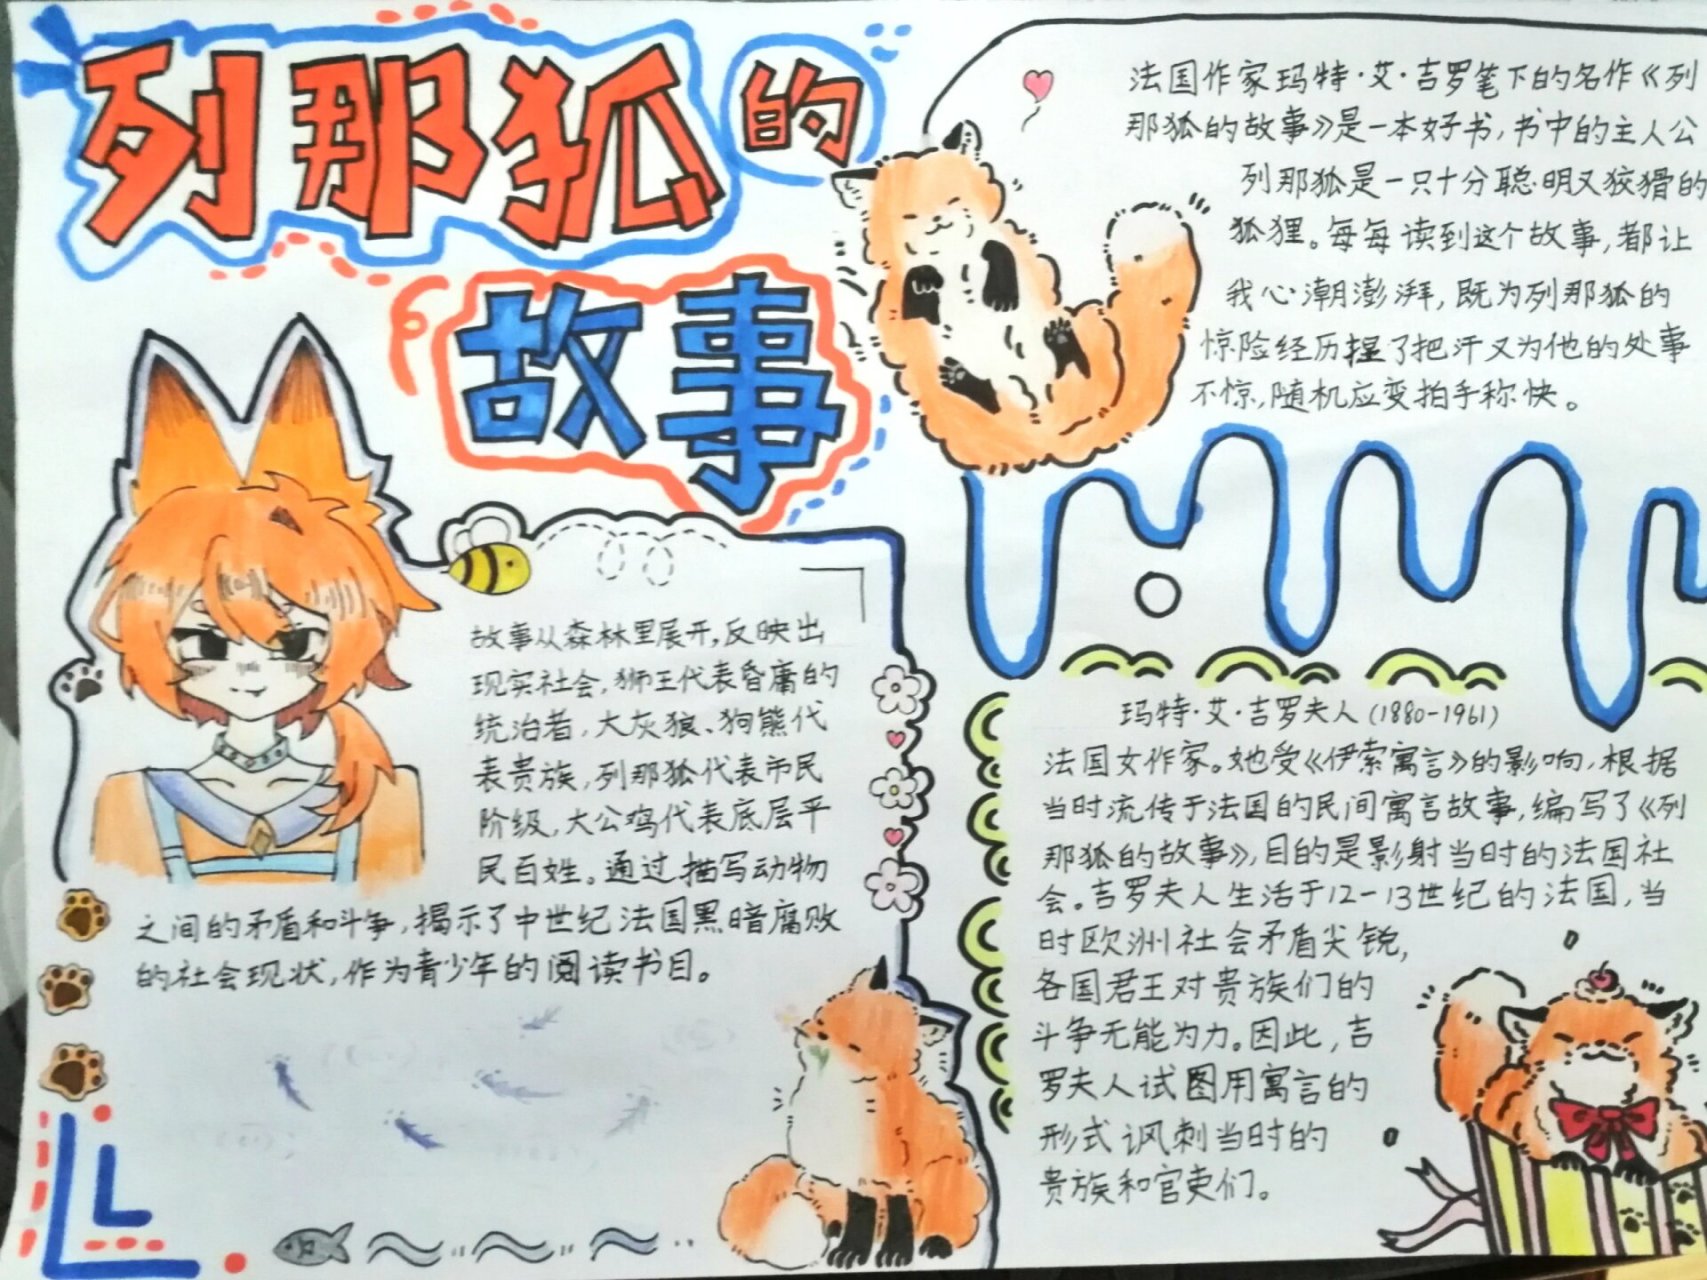 列那狐的
故事
法国作家玛特·艾·吉罗笔下的名作《列
那狐的故事》是一本好书,书中的主人公
列那狐是一只十分聪明又狡猾的
狐狸。每每读到这个故事,都让
我心潮澎湃,既为列那狐的
惊险经历捏了把汗又为他的处事
不惊,随机应变拍手称快。
故事从森林里展开,反映出
现实社会,狮王代表昏庸的
统治者,大灰狼、狗熊代
表贵族,列那狐代表市民
阶级,大公鸡代表底层平
民百姓。通过描写动物
之间的矛盾和斗争,揭示了中世纪法国黑暗腐败
的社会现状,作为青少年的阅读书目。
玛特·艾·吉罗夫人(1880-1961)
法国女作家。她受《伊索寓言》的影响,根据
当时流传于法国的民间寓言故事,编写了《列
那狐的故事》,目的是影射当时的法国社
会。吉罗夫人生活于12-13世纪的法国,当
时欧洲社会矛盾尖锐,
各国君王对贵族们的
斗争无能为力。因此,吉
罗夫人试图用寓言的
形式讽刺当时的
贵族和官吏们。